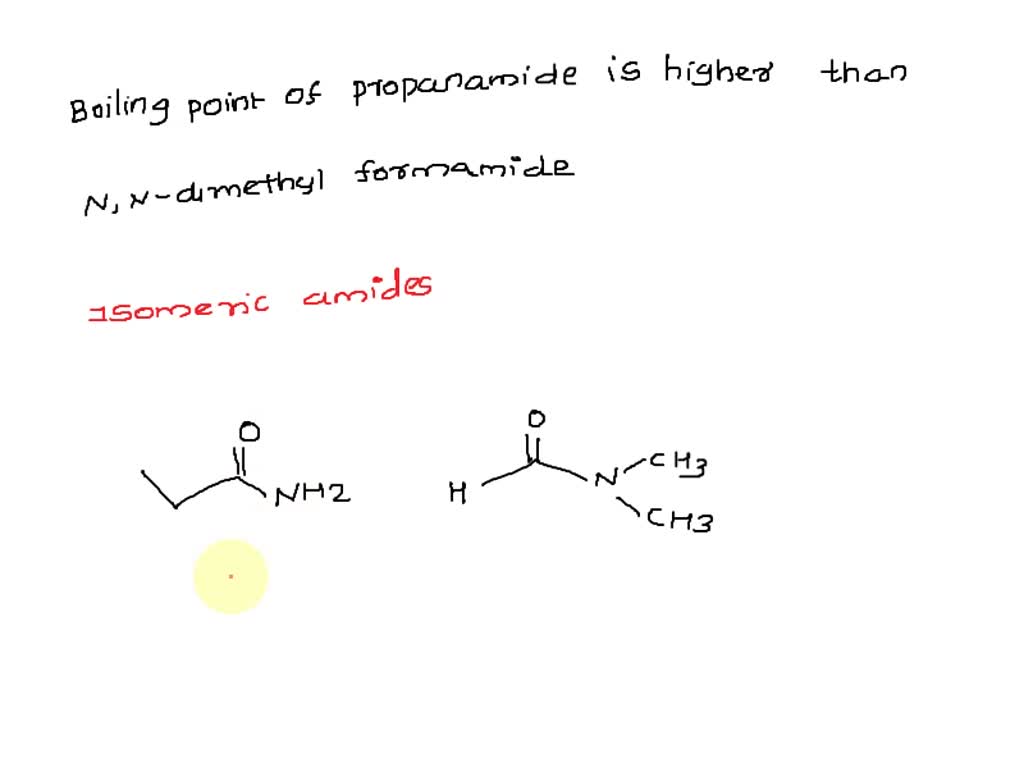 Boiling point of propanamide is higher than
N, N-dimethyl formamide
Isomeric amides
O
NH2
O
H
N
CH3
CH3